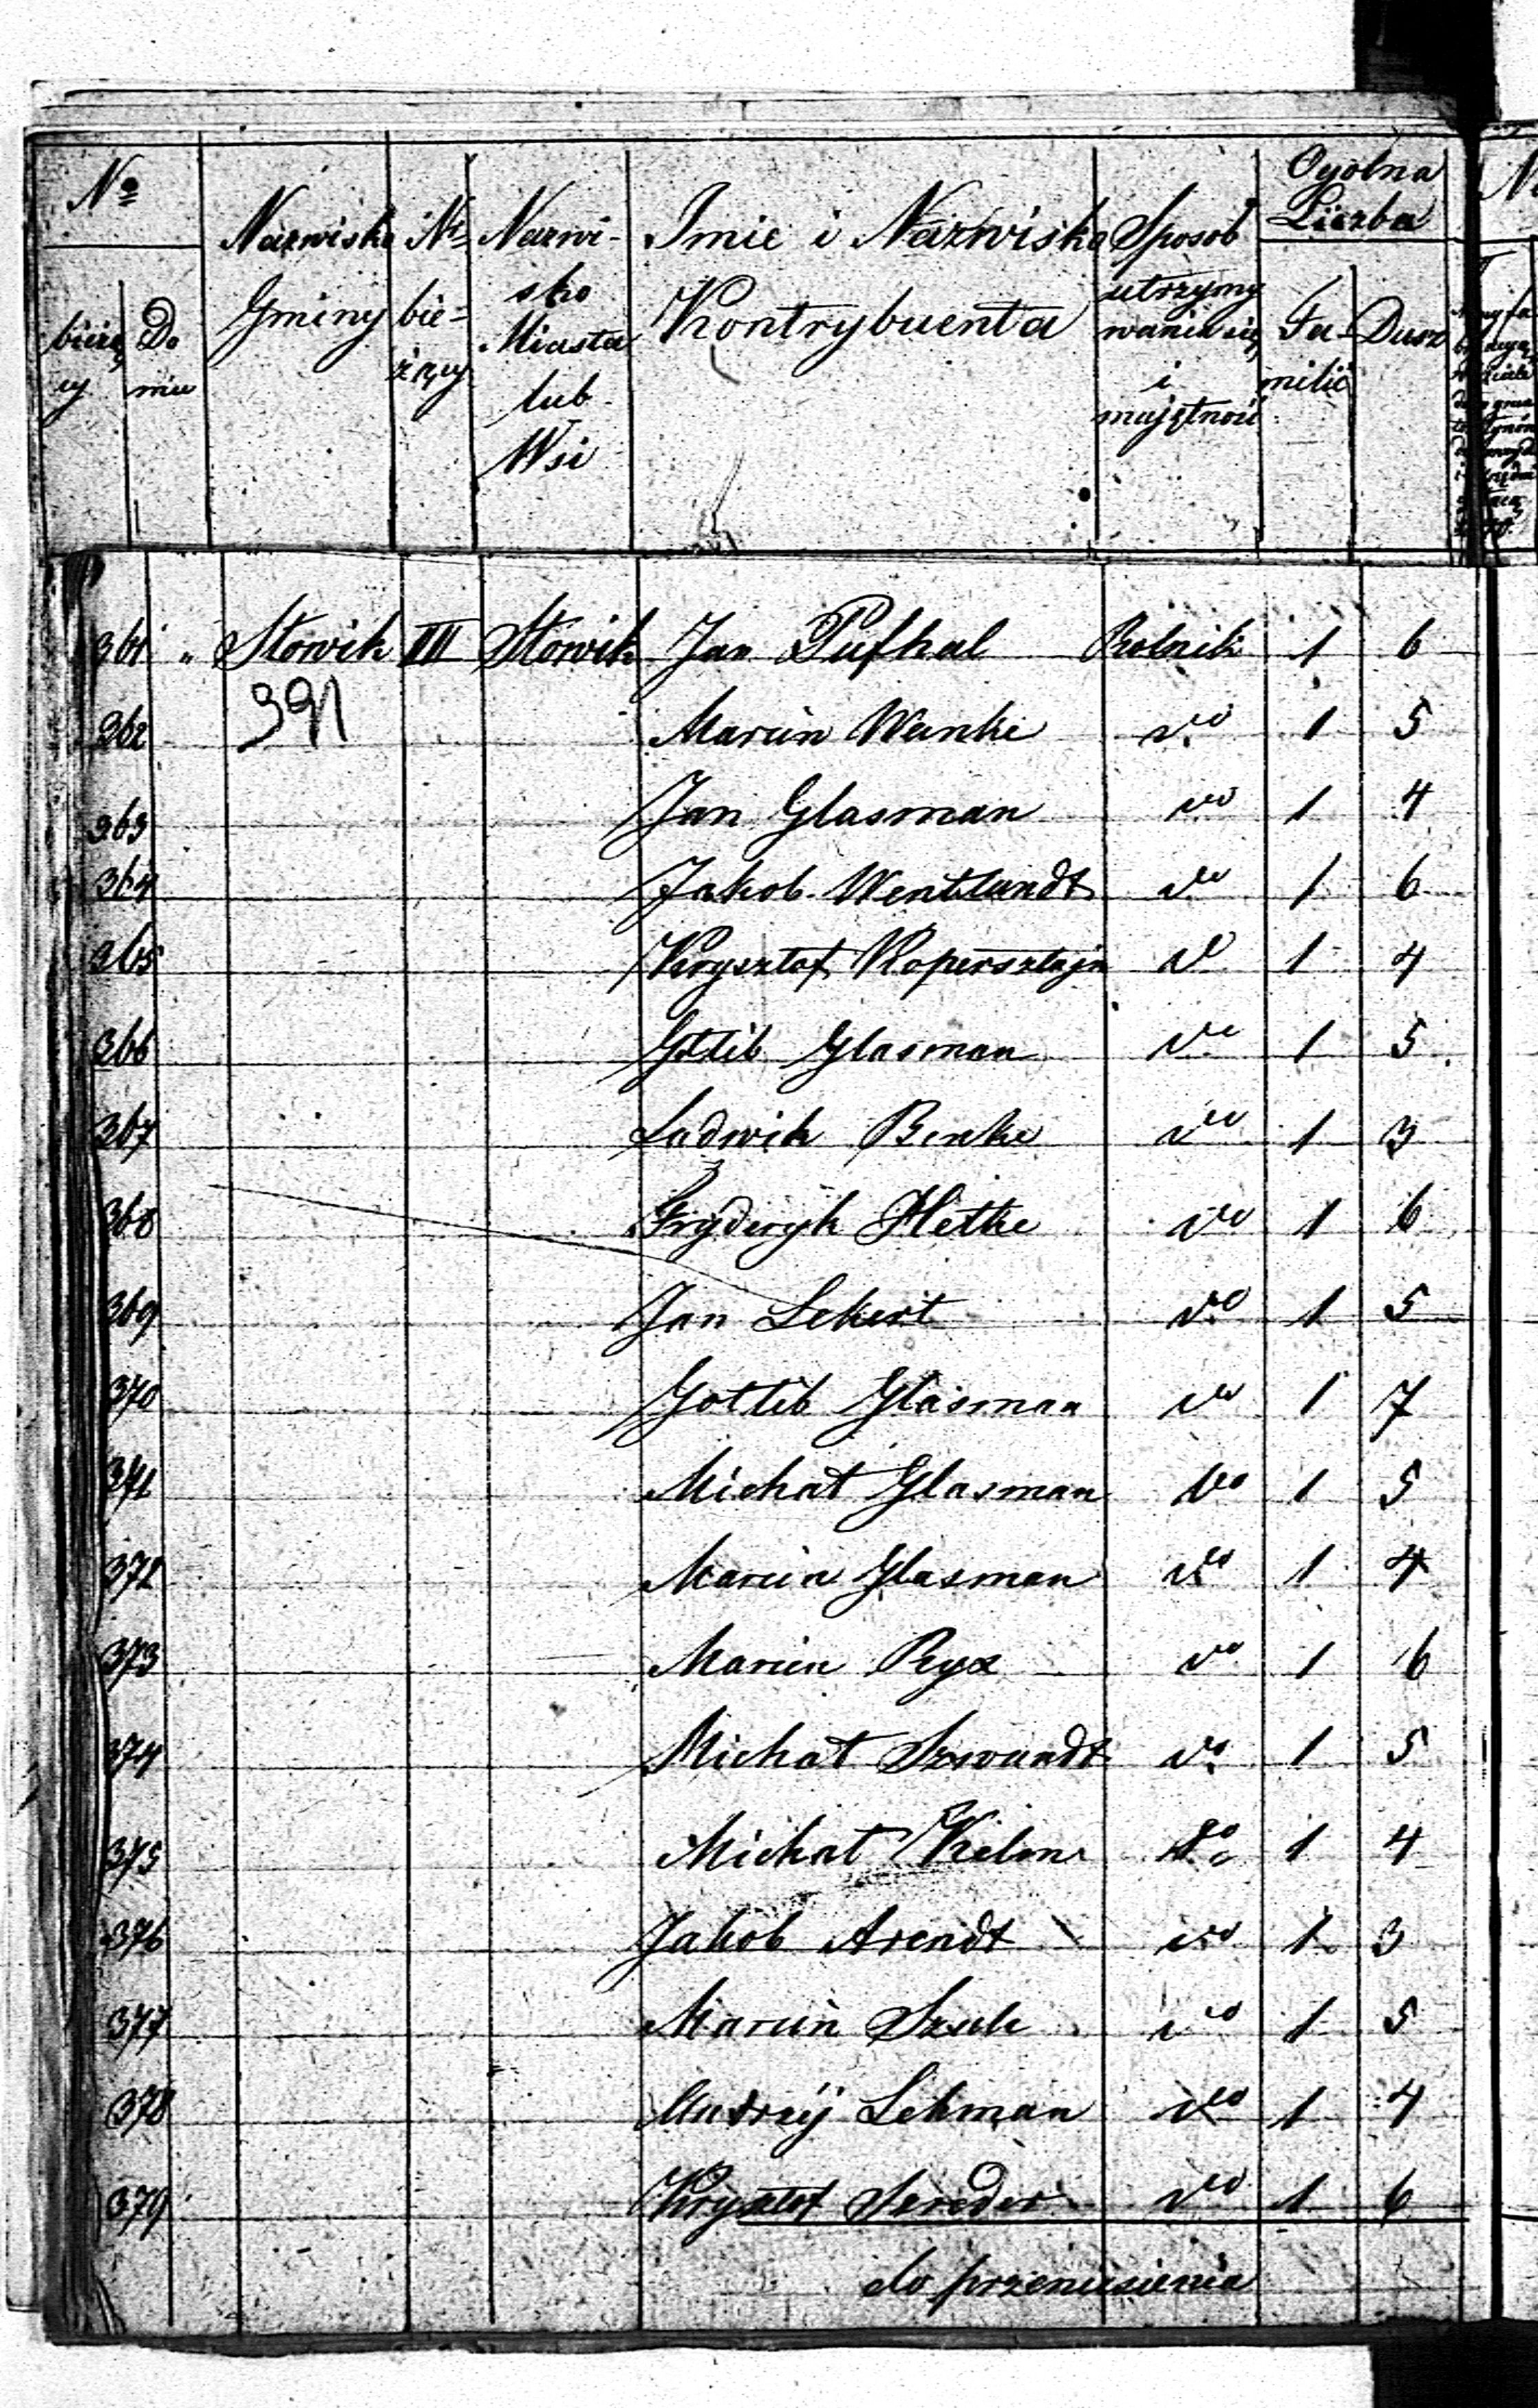 №
bieżą
cy
Do
mu
Nazwisko
Gminy
Nr
bie-
żący
Nazwi-
sko
Miasta
lub
Wsi
Imie i Nazwisko
Kontrybuenta
Sposob
utrzymy
wania się
i
majętność
Ogolna
Liczba
Fa-
milii
Dusz
361 " Słowik III Słowik Jan Pufhal Rolnik 1 6
391
362 Marcin Wanke do 1 5
363 Jan Glasman do 1 4
364 Jakob Wentlandt do 1 6
365 Krysztof Kopersztajn do 1 4
366 Gotlib Glasman do 1 5
367 Ludwik Benke do 1 3
368 Fryderyk Hetke do 1 6
369 Jan Lekert do 1 5
370 Gottlib Glasman do 1 7
371 Michał Glasman do 1 5
372 Marcin Glasman do 1 4
373 Marcin Ryx do 1 6
374 Michał Szwandt do 1 5
375 Michał do 1 4
376 Jakob Arendt do 1 3
377 Marcin Szulc do 1 5
378 Andrzÿ Lehman do 1 4
379 Krysztof do 1 6
do przeniesienia